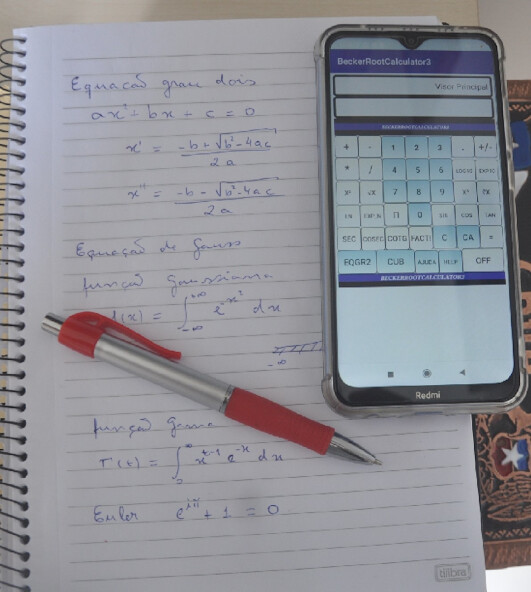 Equação grau dois
ax² + bx + c = 0
x' = -b + √b² - 4ac
2a
x'' = -b - √b² - 4ac
2a
Equação de Gauss
função gaussiana
(x) = ∫ e^-x² dx
+∞
-∞
-∞
função gama
Γ(t) = ∫ x^t-1 e^-x dx
∞
0
Euler e^iπ + 1 = 0
tilibra
BeckerRootCalculator3
Visor Principal
BECKERROOTCALCULATOR3
+ - 1 2 3 . +/-
* / 4 5 6
7 8 9
Π 0 COS TAN
SEC COSEC COTG FACTI C CA =
EQGR2 CUB AJUDA HELP OFF
BECKERROOTCALCULATOR3
Redmi